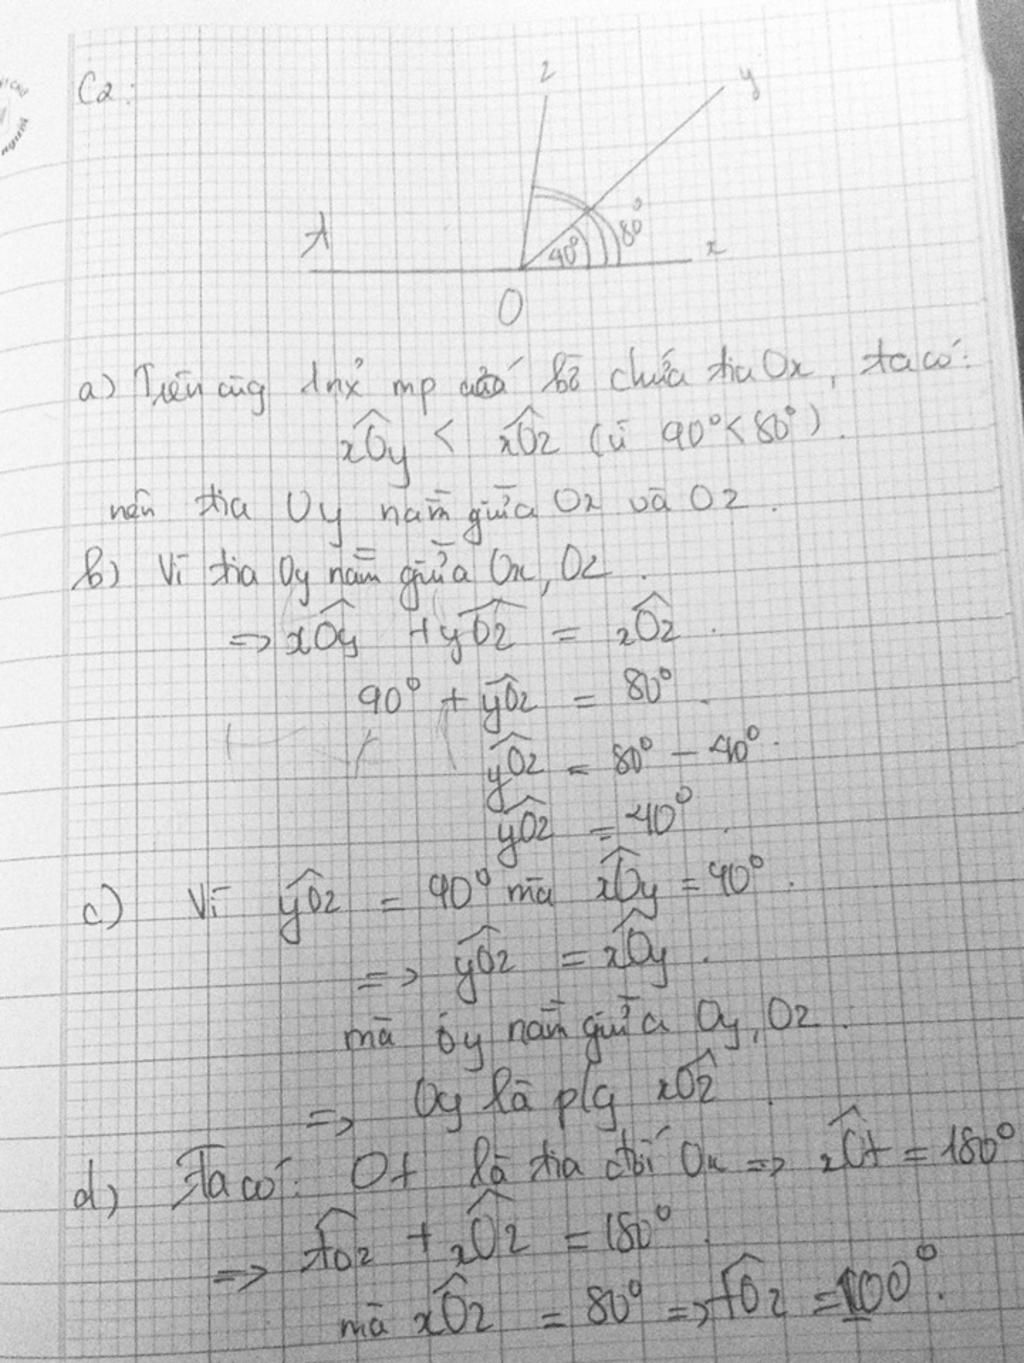 C2:
z
y
t
80°
40°
x
O
a) Trên cùg 1 nửa mp có bờ chứa tia Ox, ta có:
xOy < xOz (vì 40° < 80°).
nên tia Oy nằm giữa Ox và Oz.
b) Vì tia Oy nằm giữa Ox, Oz.
=> xOy + yOz = xOz.
40° + yOz = 80°.
yOz = 80° - 40°.
yOz = 40°.
c) Vì yOz = 40° mà xOy = 40°.
=> yOz = xOy.
mà Oy nằm giữa Oy, Oz.
=> Oy là p/g xOz.
d) Ta có: Ot là tia đối Ox => xOt = 180°
=> tOz + xOz = 180°.
mà xOz = 80° => tOz = 100°.